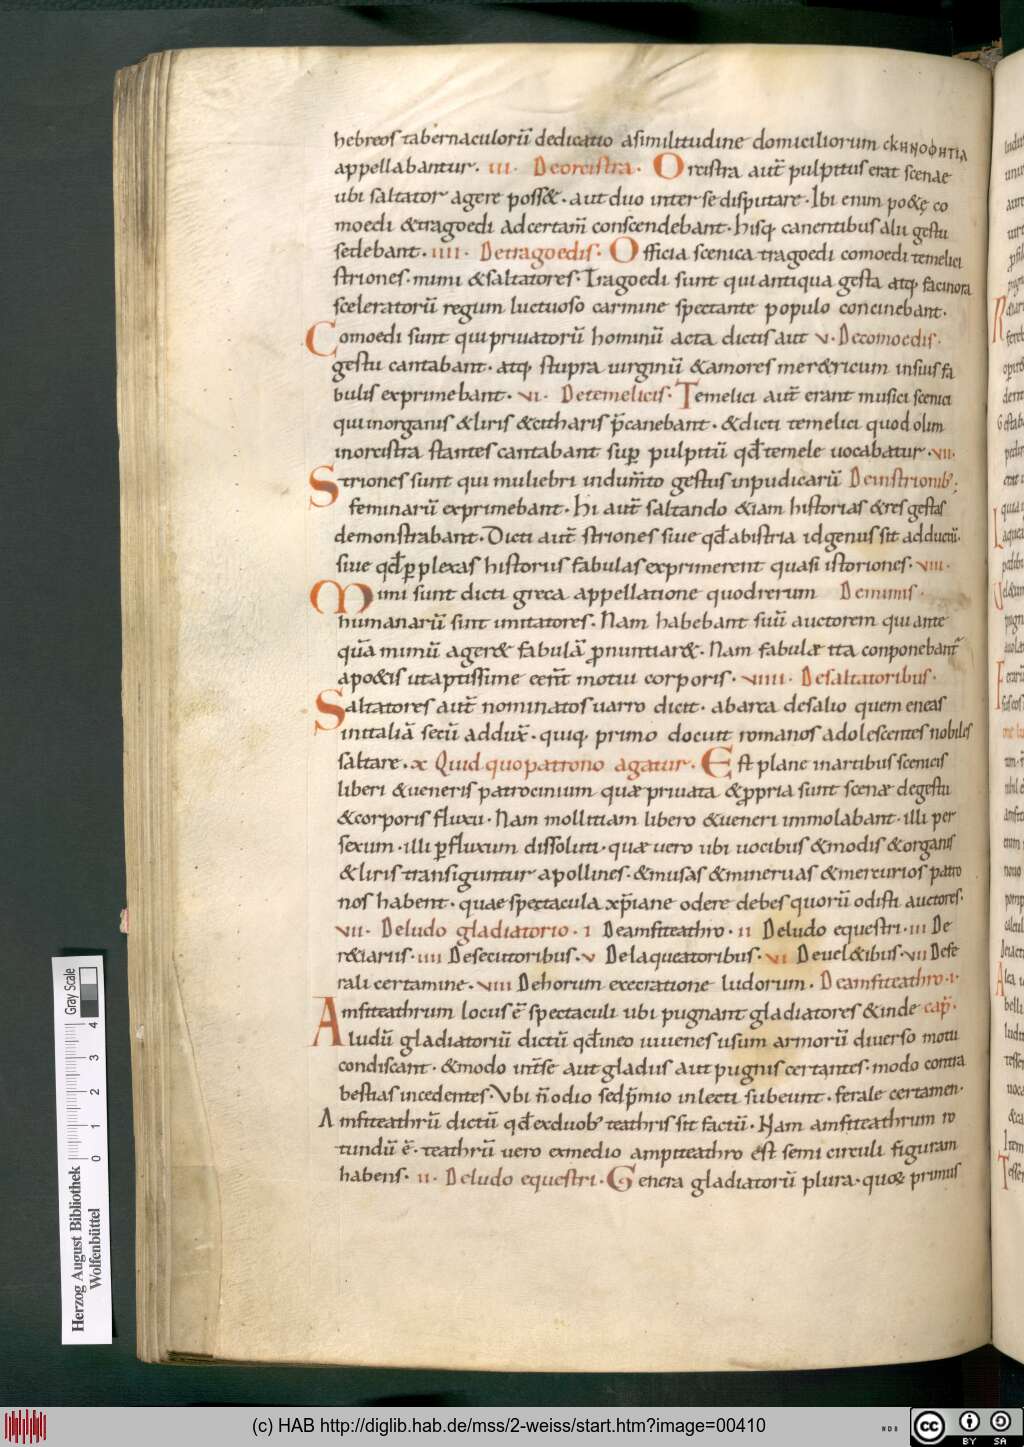 hebreos tabernaculorũ dedicatio asimilitudine domiciliorum CKHNOΦHTIA
appellabantur. III. Deorcistra. Orcistra aut̃ pulpitus erat scenae
ubi saltator agere poss&. aut duo inter se disputare. Ibi enim po&ę co
moedi &tragoedi adcertam̃ conscendebant. hisq; canentibus alii gestu
sedebant. IIII. Detragoedis. Officia scenica tragoedi comoedi temelici
striones. mimi &saltatores. Tragoedi sunt qui antiqua gesta atq; facinora
sceleratorũ regum luctuoso carmine spectante populo concinebant.
Comoedi sunt qui priuatorũ hominũ acta dictis aut V. Decomoedis.
gestu cantabant. atq; stupra uirginũ &amores mer&ricum insuis fa
bulis exprimebant. VI. Detemelicis. Temelici aut̃ erant musici scenici
qui inorganis &liris &citharis p̃canebant. &dicti temelici quod olim
inorcistra stantes cantabant sup̱ pulpitũ qđ temele uocabatur. VII.
Striones sunt qui muliebri indum̃to gestus inpudicarũ Deinstrionib;
feminarũ exprimebant. Hi aut̃ saltando &iam historias &res gestas
demonstrabant. Dicti aut̃ striones siue qđ abistria id genus sit adductũ.
siue qđ p̱plexas historiis fabulas exprimerent quasi istoriones. VIII.
Mimi sunt dicti greca appellatione quodrerum Demimis.
humanarũ sint imitatores. Nam habebant suũ auctorem qui ante
quã mimũ ager& fabulã pnuntiar&. Nam fabulæ ita conponebant̃
apo&is utaptissime eent̃ motui corporis. VIIII. Desaltatoribus.
Saltatores aut̃ nominatos uarro dicit. abarca desalio quem eneas
initaliã secũ addux̃. quiq; primo docuit romanos adolescentes nobiles
saltare. X Quid quopatrono agatur. Est plane inartibus scenicis
liberi &ueneris patrocinium quæ priuata &ppria sunt scenæ degestu
&corporis fluxu. Nam mollitiam libero &ueneri immolabant. illi per
sexum. illi p̱ fluxum dissoluti. quæ uero ubi uocibus &modis &organis
&liris transiguntur apollines. &musas &mineruas &mercurios patro
nos habent. quae spectacula xp̃iane odere debes quorũ odisti auctores.
VII. Deludo gladiatorio. I Deamfiteathro. II Deludo equestri. III De
r&iariis. IIII Desecutoribus. V Delaqueatoribus. VI Deuel&ibus. VII Defe
rali certamine. VIII Dehorum execratione ludorum. Deamfiteathro. I.
Amfiteathrum locus ẽ spectaculi ubi pugnant gladiatores &inde cap̃.
ludũ gladiatoriũ dictũ qđ ineo iuuenes usum armorũ diuerso motu
condiscant. &modo int̃ se aut gladiis aut pugnis certantes. modo contra
bestias incedentes. Vbi ñ odio sed p̃mio inlecti subeunt. ferale certamen.
Amfiteathrũ dictũ qđ exduob; teathris sit factũ. Nam amfiteathrum ro
tundũ ẽ. teathrũ uero exmedio ampiteathro est semi circuli figuram
habens. II. Deludo equestri. Genera gladiatorũ plura. quoꝝ primus
Herzog August Bibliothek
Wolfenbüttel
0 1 2 3 4
Gray Scale
(c) HAB http://diglib.hab.de/mss/2-weiss/start.htm?image=00410
cc BY SA